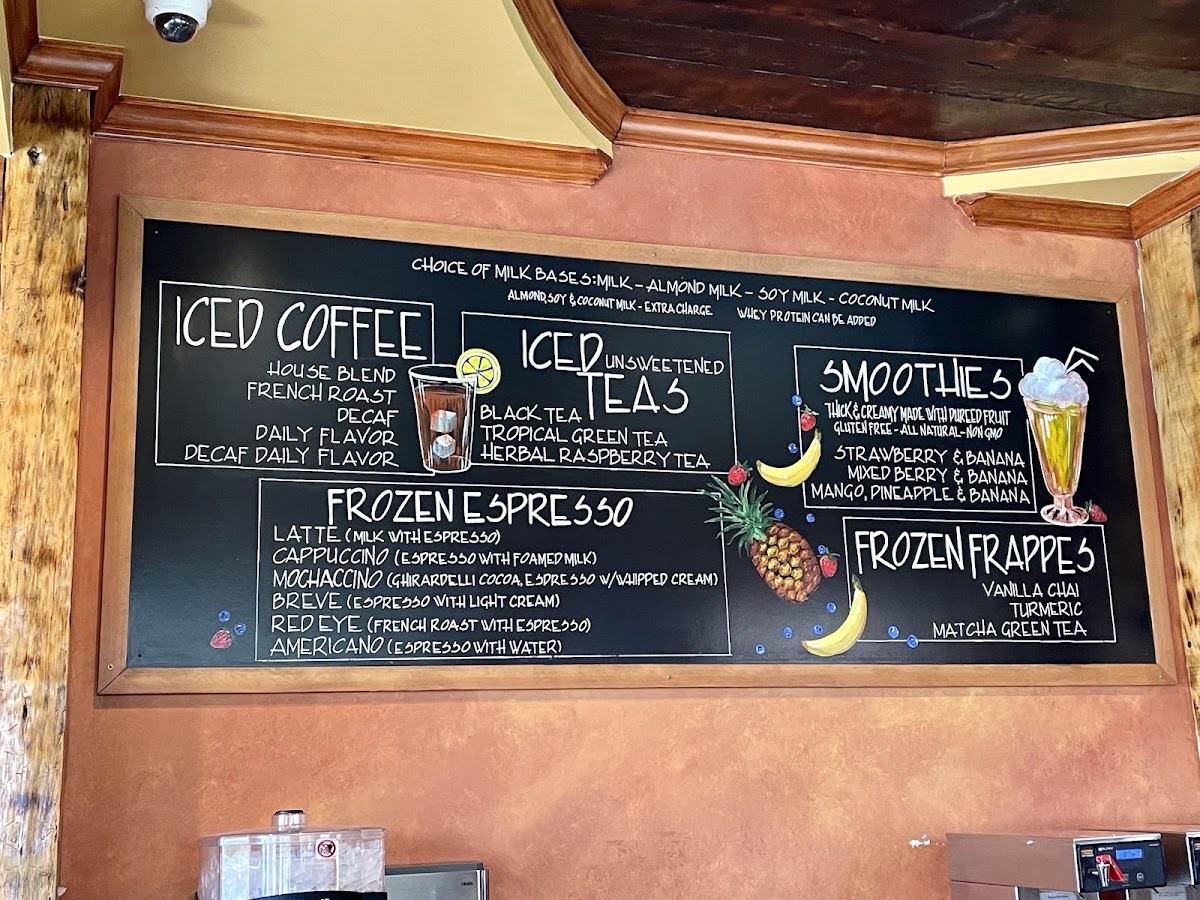 CHOICE OF MILK BASES: MILK - ALMOND MILK - SOY MILK - COCONUT MILK
ALMOND, SOY & COCONUT MILK - EXTRA CHARGE WHEY PROTEIN CAN BE ADDED
ICED COFFEE
HOUSE BLEND
FRENCH ROAST
DECAF
DAILY FLAVOR
DECAF DAILY FLAVOR
ICED UNSWEETENED
TEAS
BLACK TEA
TROPICAL GREEN TEA
HERBAL RASPBERRY TEA
SMOOTHIES
THICK & CREAMY MADE WITH PUREED FRUIT
GLUTEN FREE - ALL NATURAL - NON GMO
STRAWBERRY & BANANA
MIXED BERRY & BANANA
MANGO, PINEAPPLE & BANANA
FROZEN ESPRESSO
LATTE (MILK WITH ESPRESSO)
CAPPUCCINO (ESPRESSO WITH FOAMED MILK)
MOCHACCINO (GHIRARDELLI COCOA, ESPRESSO W/WHIPPED CREAM)
BREVE (ESPRESSO WITH LIGHT CREAM)
RED EYE (FRENCH ROAST WITH ESPRESSO)
AMERICANO (ESPRESSO WITH WATER)
FROZEN FRAPPES
VANILLA CHAI
TURMERIC
MATCHA GREEN TEA